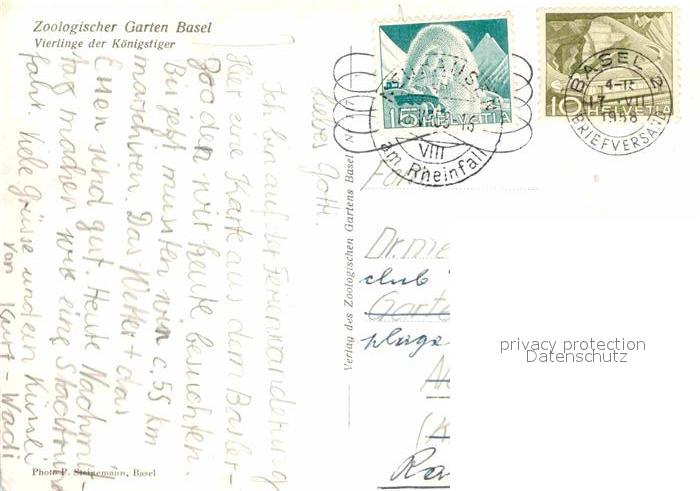 Zoologischer Garten Basel
Vierlinge der Königstiger
Liebes Gotti.
Ich bin auf der Ferienwanderung
Hier eine Karte aus dem Basler-
Zoo den wir heute besichten.
Bis jetzt mussten wir c. 55 km
marschieren. Das Wetter + das
Essen sind gut. Heute Nachmit-
tag machen wir eine Stadtrund
fahrt. Viele Grüsse und ein Küssli
von Kurt - Wadi
Photo P. Steinemann, Basel
Verlag des Zoologischen Gartens Basel
15 HELVETIA
VIII
am Rheinfall
10 HELVETIA
BASEL 2
17. VII
1958
BRIEFVERSAND
Dr. me
club
Garte
plage
Ra
privacy protection
Datenschutz